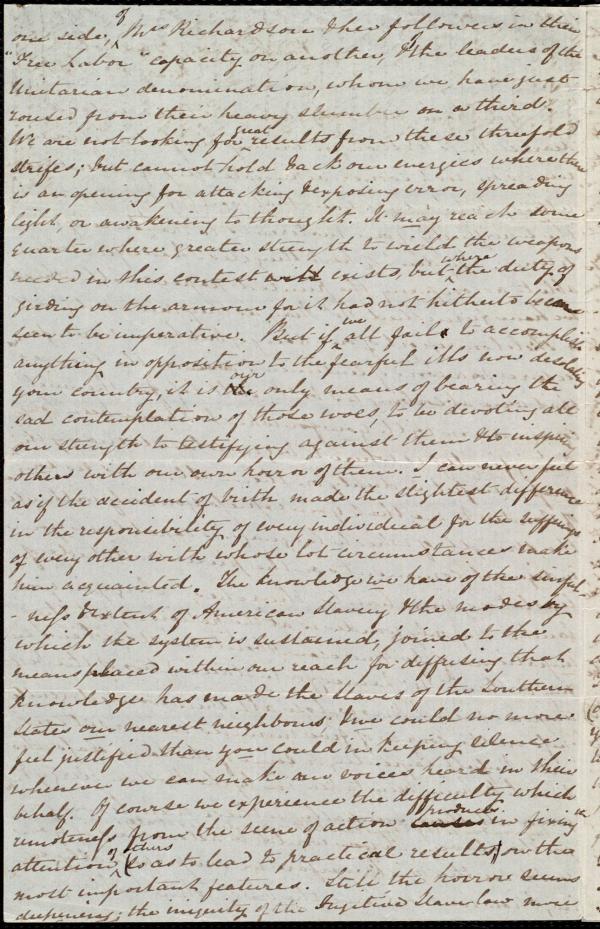 one side, of Mrs Richardson & her followers in their
"Free Labor" capacity on another, & the leaders of the
Unitarian denomination, whom we have just
roused from their heavy slumber on a third.
We are not looking for great results from these threefold
strifes; but cannot hold back our energies where there
is an opening for attacking & exposing error, spreading
light, or awakening to thought. It may reach some
quarter where greater strength to wield the weapons
needed in this contest exists, but where the duty of
girding on the armour for it had not hitherto been
seen to be imperative. But if we all fail to accomplish
anything in opposition to the fearful ills now desolating
your country, it is our only means of bearing the
sad contemplation of those woes, to be devoting all
our strength to testifying against them & to inspire
others with our own horror of them. I can never feel
as if the accident of birth made the slightest difference
in the responsibility of every individual for the sufferings
of every other with whose lot circumstances make
him acquainted. The knowledge we have of the sinful
-ness & extent of American Slavery & the modes by
which the system is sustained, joined to the
means placed within our reach for diffusing that
knowledge has made the slaves of the Southern
States our nearest neighbours, & we could no more
feel justified than you could in keeping silence
whenever we can make our voices heard in their
behalf. Of course we experience the difficulty which
remoteness from the scene of action produces in fixing the
attention of others (so as to lead to practical results) on the
most important features. Still the horror seems
deepening; the iniquity of the Fugitive Slave law more